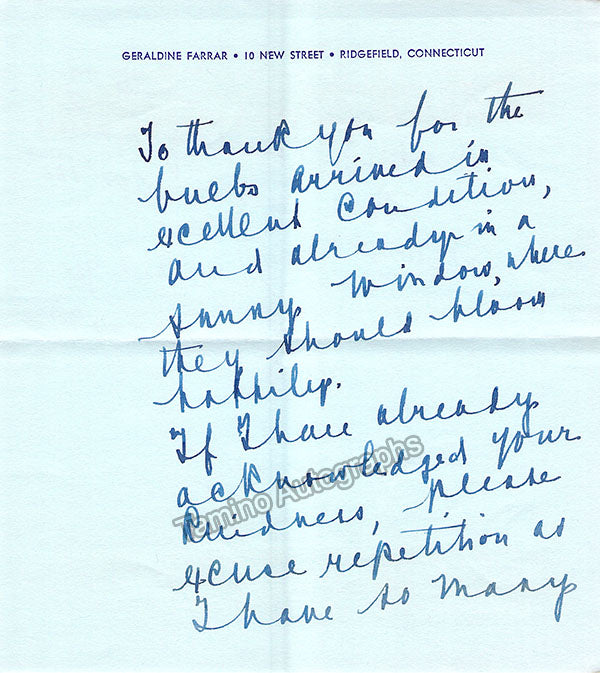 GERALDINE FARRAR • 10 NEW STREET • RIDGEFIELD, CONNECTICUT
To thank you for the
bulbs arrived in
excellent condition,
and already in a
sunny window, where
they should bloom
happily.
If I have already
acknowledged your
kindness, please
excuse repetition as
I have so many
Tamino Autographs